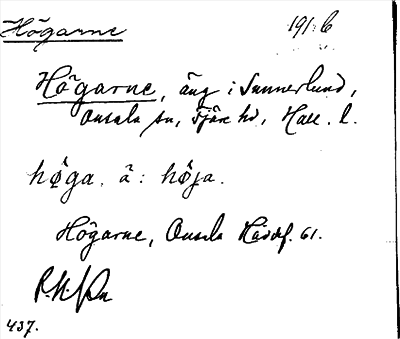 Högarne
191: b
Högarne, äng i Sunnerlund,
Onsala sn, Fjäre hd, Hall. l.
høga. ä: høja.
Högarne, Onsala Häradsf. 61.
437.